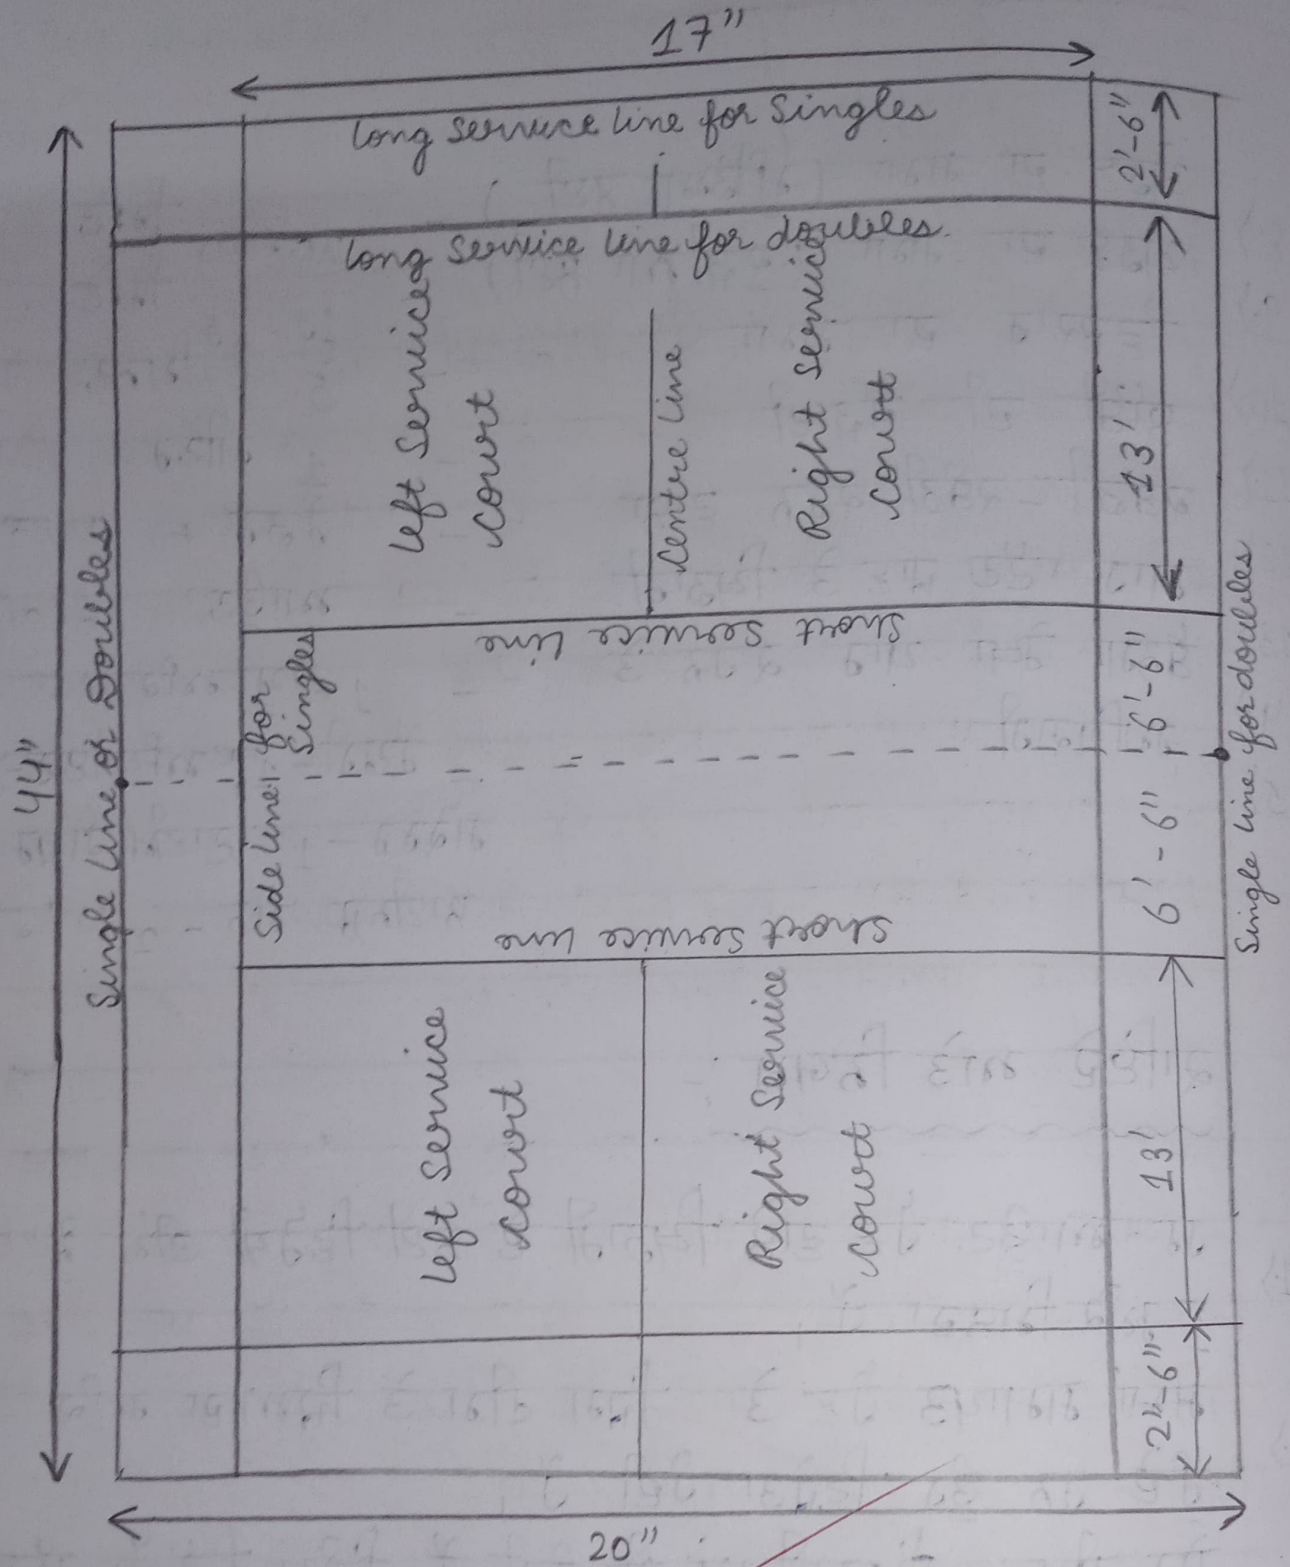 17"
long service line for Singles
2'-6"
long service line for doubles.
left Service
court
Centre line
Right Service
court
13'
44"
Single line or Doubles
Short service line
Side line for
Singles
6'-6"
6'-6"
Single line for doubles
Short service line
left Service
court
Right Service
court
13'
2"-6"
20"